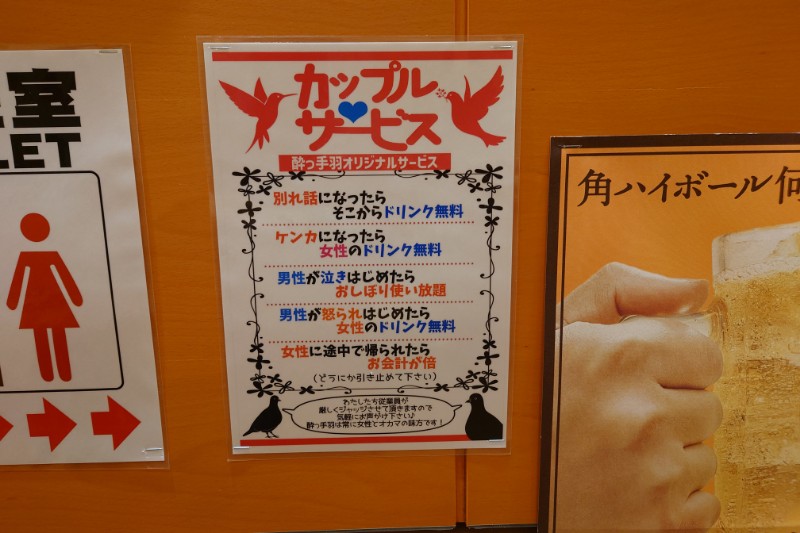 室
LET
カップル
サービス
酔っ手羽オリジナルサービス
別れ話になったら
そこからドリンク無料
ケンカになったら
女性のドリンク無料
男性が泣きはじめたら
おしぼり使い放題
男性が怒られはじめたら
女性のドリンク無料
女性に途中で帰られたら
お会計が倍
(どうにか引き止めて下さい)
わたしたち従業員が
厳しくジャッジさせて頂きますので
気軽にお声がけ下さい♪
酔っ手羽は常に女性とオカマの味方です!
角ハイボール何